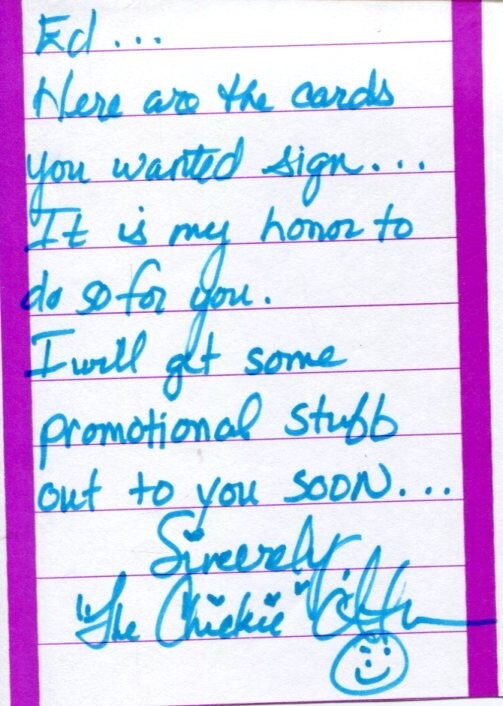 Ed...
Here are the cards
you wanted sign...
It is my honor to
do so for you.
I will get some
promotional stuff
out to you soon...
Sincerely
"The Chickie"